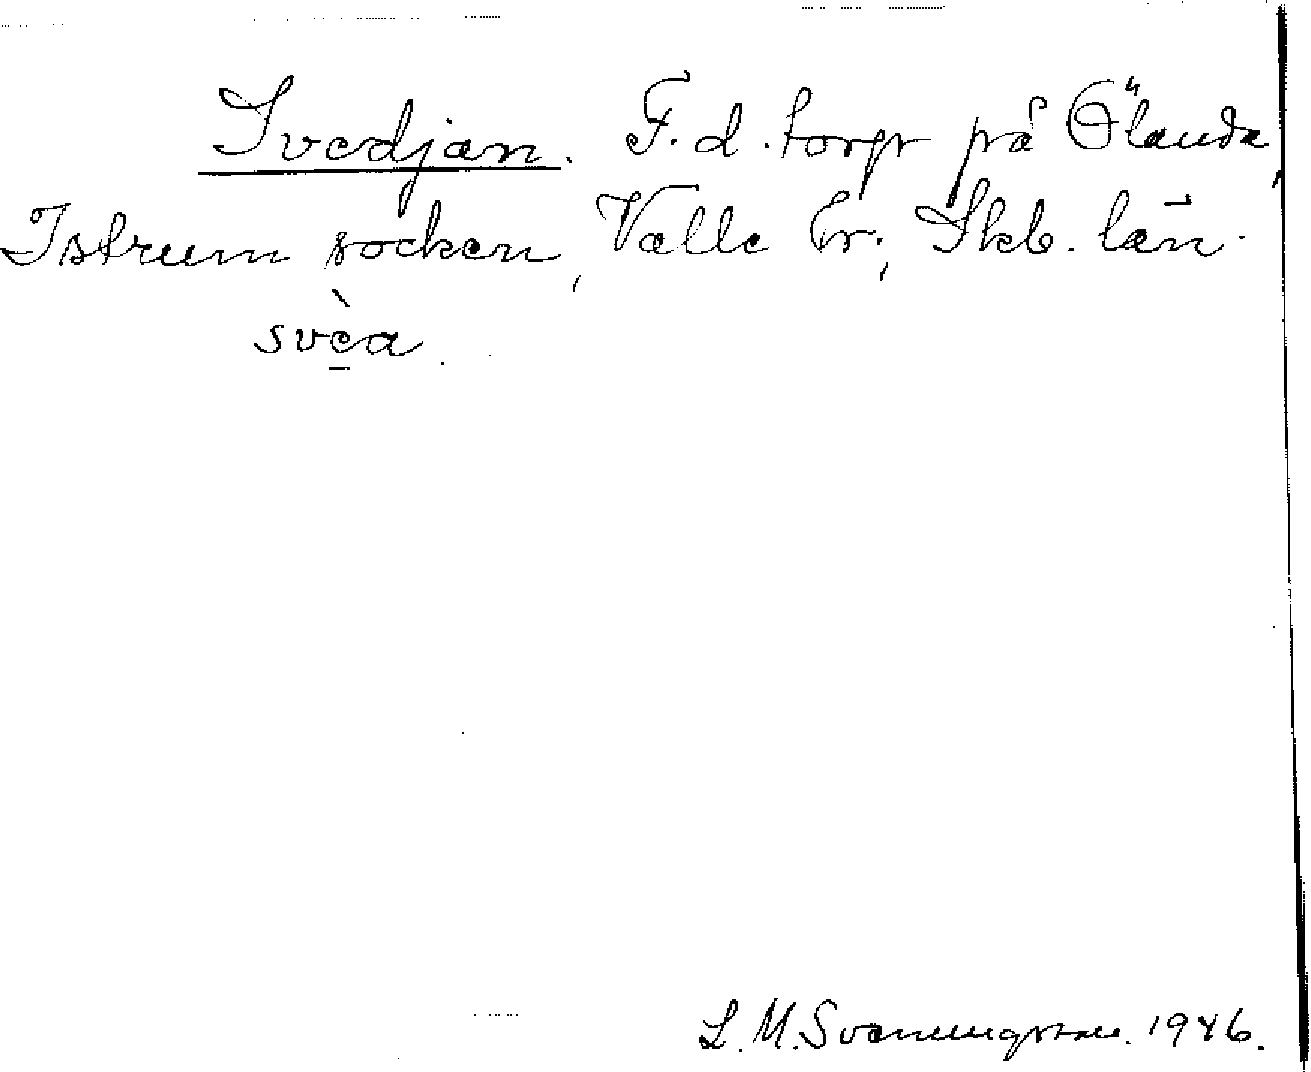 Svedjan. F. d. torp på Ölanda,
Istrum socken, Valle hr., Skb. län.
svèa.
L. M. Svenningsson. 1946.